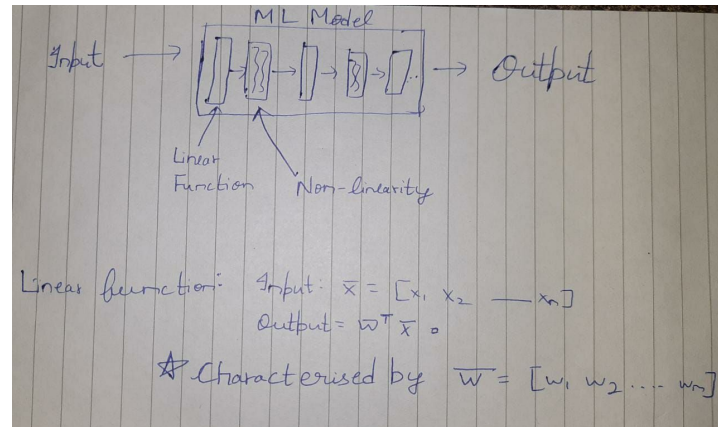 ML Model
Input → → → → → → Output
Linear
Function
Non-linearity
Linear function: Input: x̅ = [x₁ x₂ — xₙ]
Output = w̅ᵀ x̅ .
☆ Characterised by w̅ = [w₁ w₂ .... wₙ]